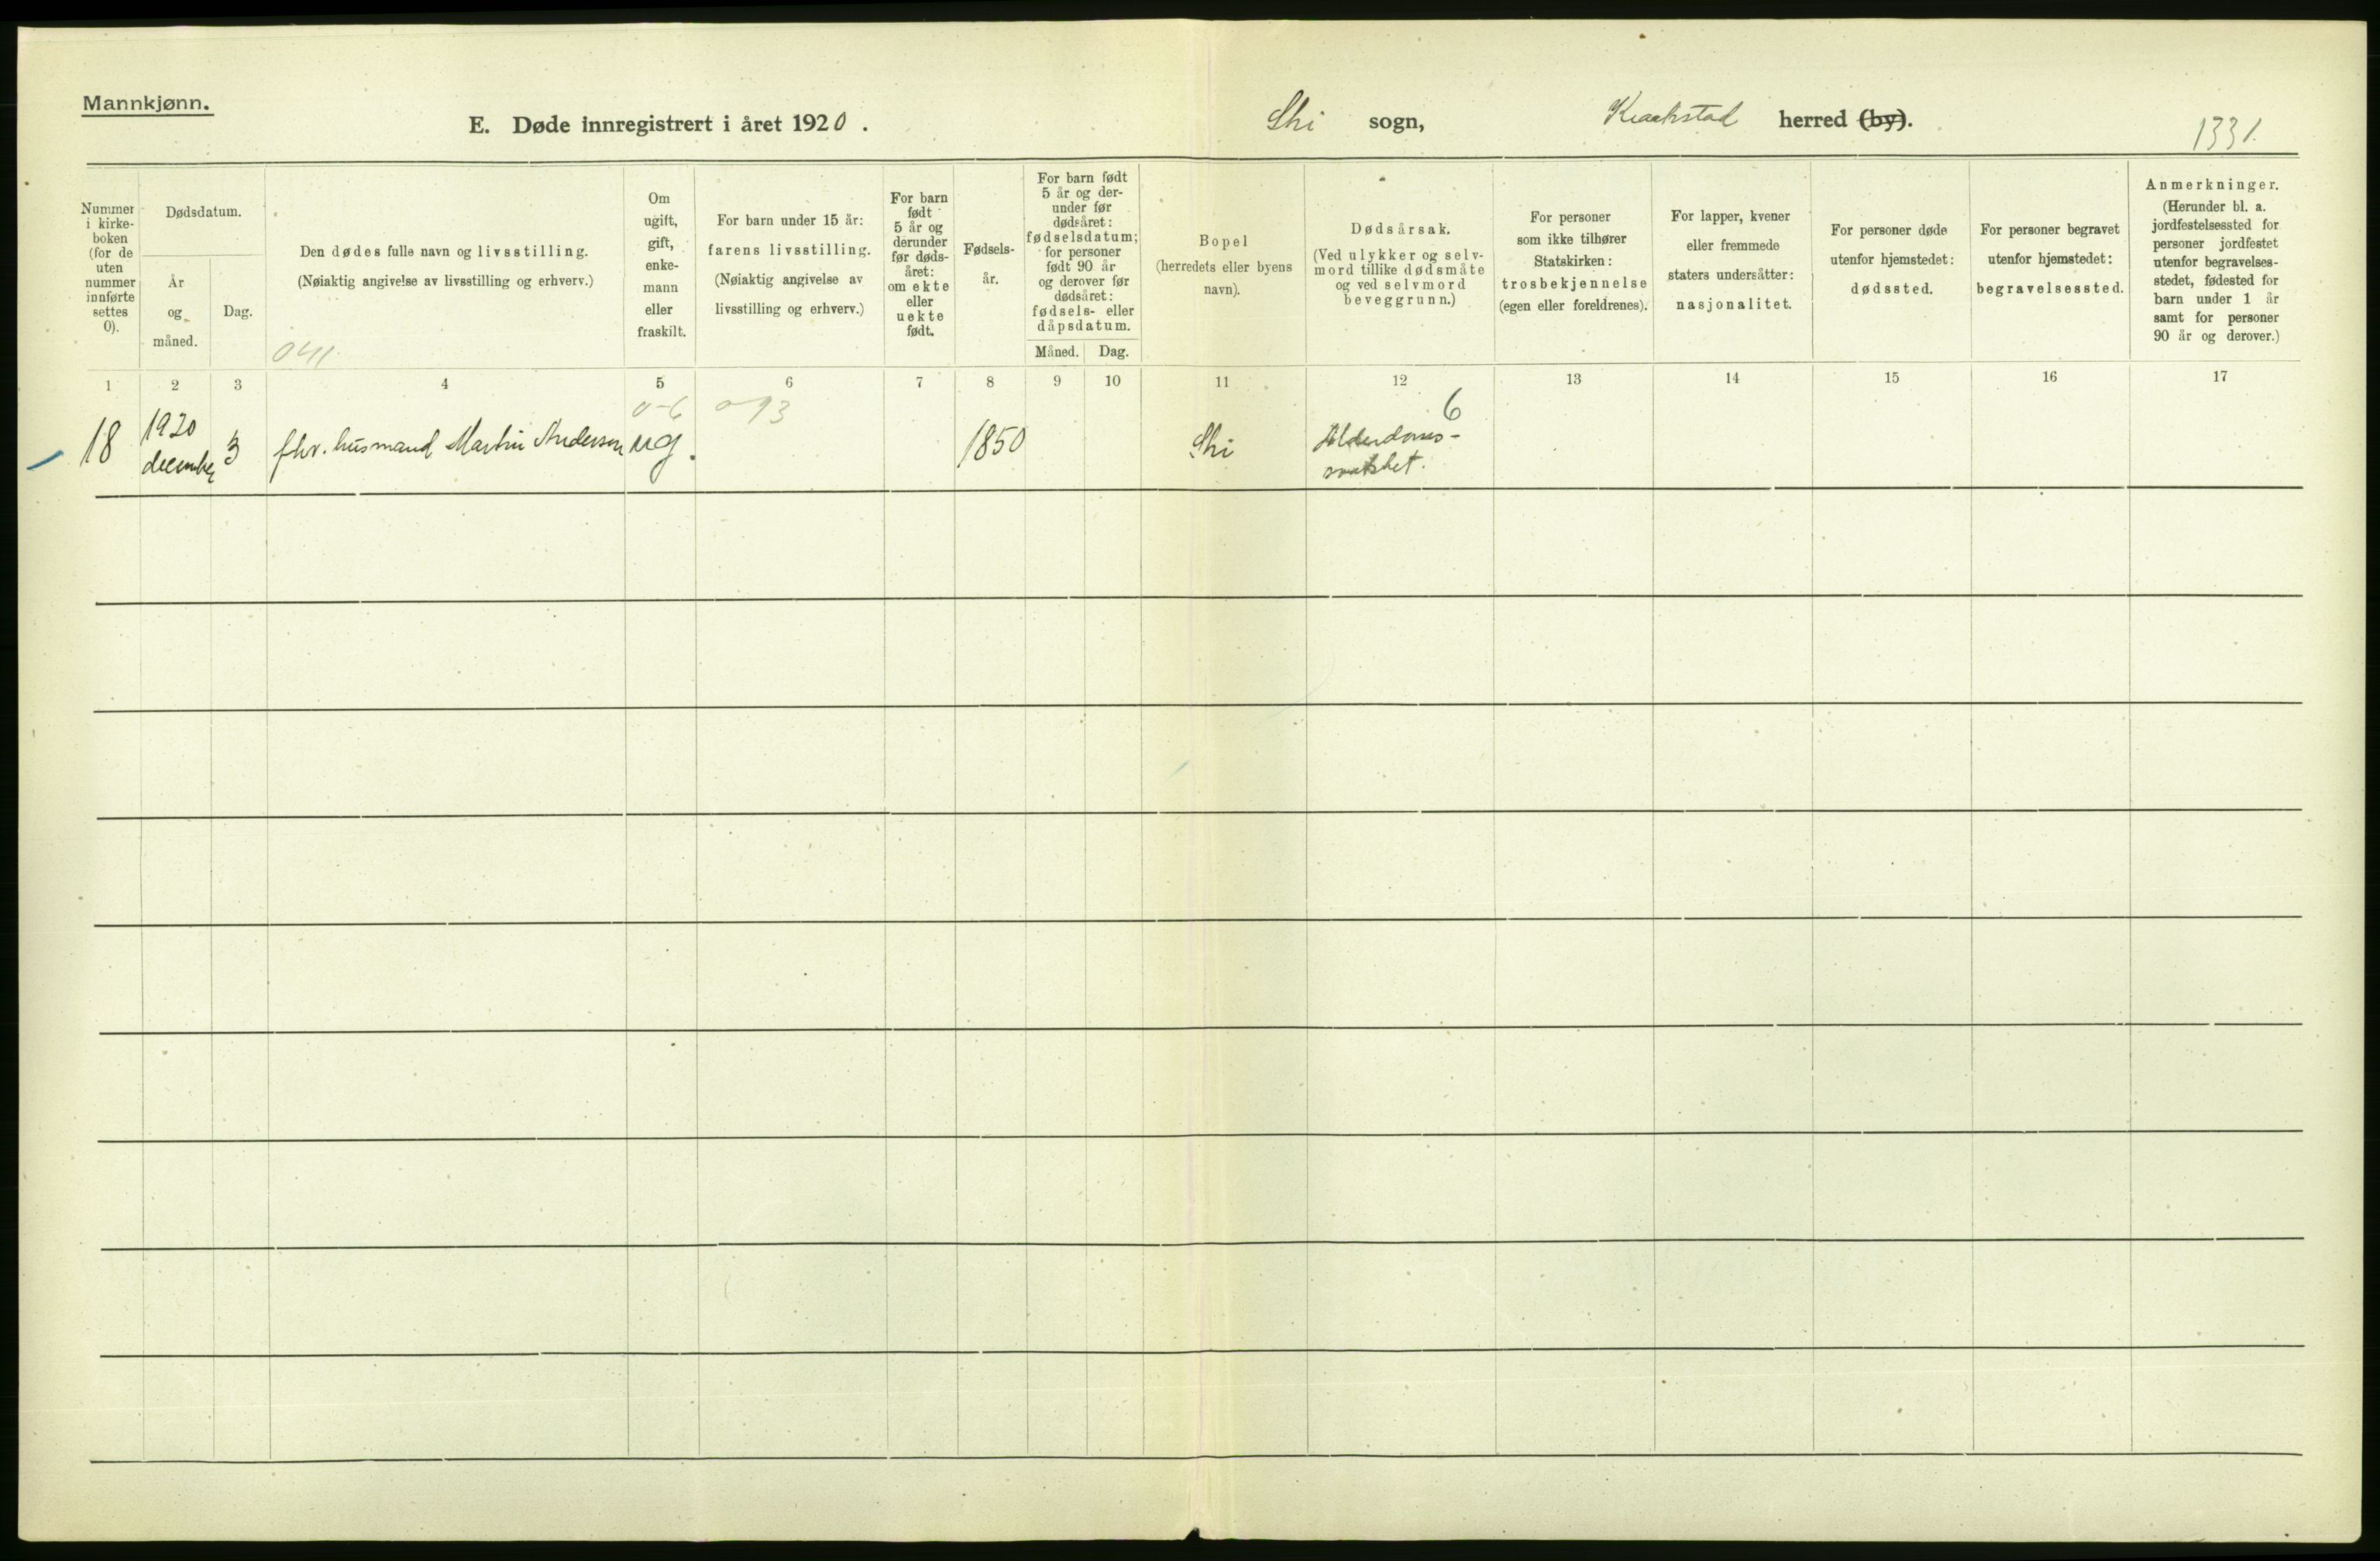 Mannkjønn.
E. Døde innregistrert i året 1920.
Ski sogn, Kraakstad herred (by).
1331.
Nummer i kirke-boken (for de uten nummer innførte settes 0).
Dødsdatum.
År og måned.
Dag.
Den dødes fulle navn og livsstilling.
(Nøiaktig angivelse av livsstilling og erhverv.)
041.
Om ugift, gift, enke-mann eller fraskilt.
For barn under 15 år:
farens livsstilling.
(Nøiaktig angivelse av livsstilling og erhverv.)
For barn født 5 år og derunder før døds-året: om ekte eller uekte født.
Fødsels-år.
For barn født 5 år og der-under før dødsåret: fødselsdatum; for personer født 90 år og derover før dødsåret: fødsels- eller dåpsdatum.
Måned. Dag.
Bopel
(herredets eller byens navn).
Dødsårsak.
(Ved ulykker og selv-mord tillike dødsmåte og ved selvmord beveggrunn.)
For personer som ikke tilhører Statskirken:
trosbekjennelse
(egen eller foreldrenes).
For lapper, kvener eller fremmede staters undersåtter:
nasjonalitet.
For personer døde utenfor hjemstedet:
dødssted.
For personer begravet utenfor hjemstedet:
begravelsessted.
Anmerkninger.
(Herunder bl. a. jordfestelsessted for personer jordfestet utenfor begravelses-stedet, fødested for barn under 1 år samt for personer 90 år og derover.)
1 2 3 4 5 6 7 8 9 10 11 12 13 14 15 16 17
6
18 1920 december 3 fhv. husmand Martin Andersen ug. 1850 Ski Alderdoms-
svakhet.